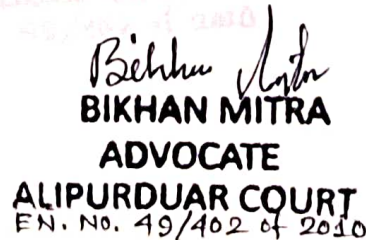 BIKHAN MITRA
ADVOCATE
ALIPURDUAR COURT
EN. NO. 49/402 of 2010